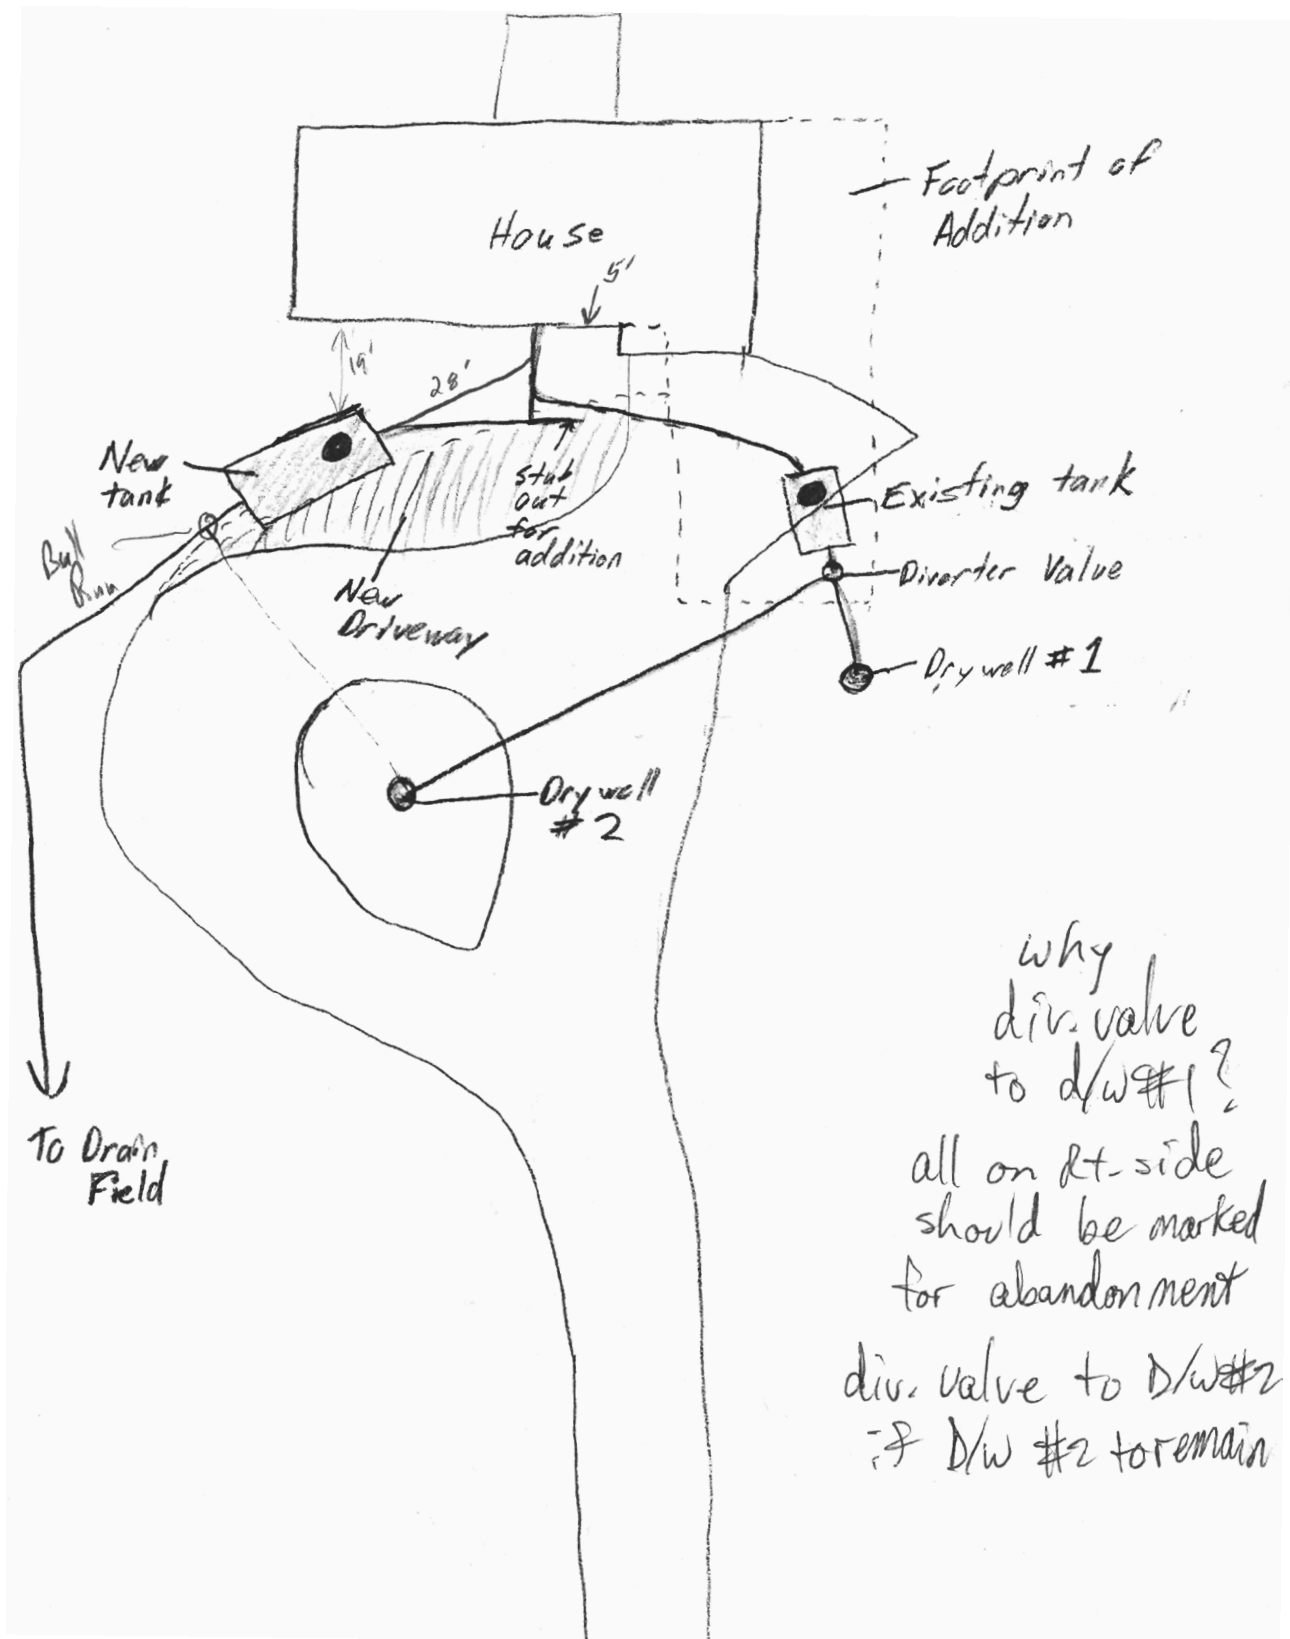 Footprint of
Addition
House
5'
19'
28'
New
tank
Bull
Run
stub
out
for
addition
New
Driveway
Existing tank
Diverter Valve
Drywell #1
Drywell
#2
To Drain
Field
why
div. valve
to d/w#1?
all on Rt. side
should be marked
for abandonment
div. valve to D/W#2
if D/W #2 to remain